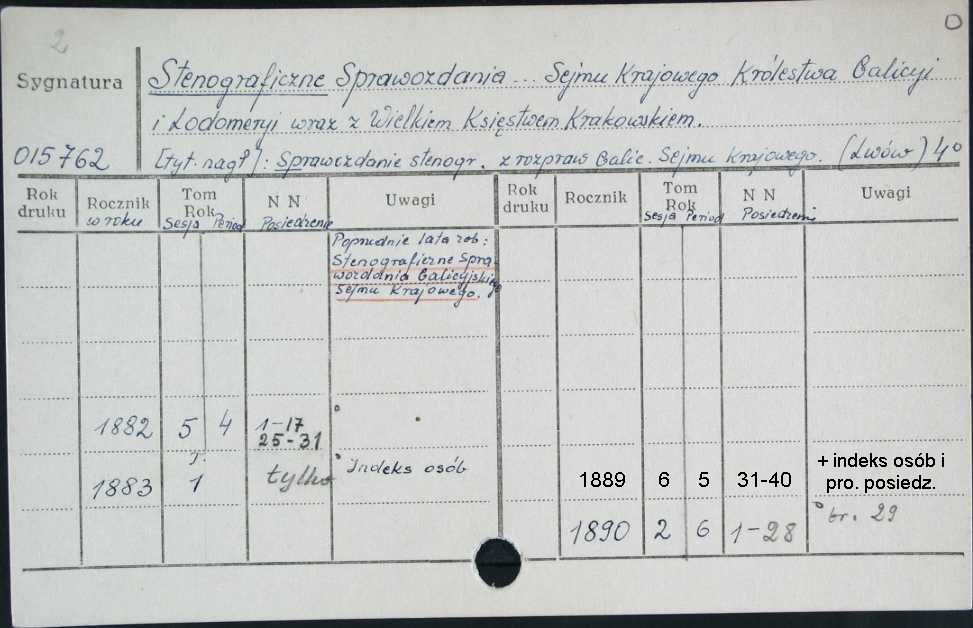 2
Sygnatura
Stenograficzne Sprawozdania ... Sejmu Krajowego Królestwa Galicyi
i Lodomeryi wraz z Wielkiem Księstwem Krakowskiem.
015762
[tyt. nagł]: Sprawozdanie stenogr. z rozpraw Galic. Sejmu Krajowego. (Lwów) 4°
Rok druku
Rocznik w roku
Tom Rok
Sesja Period
N N
Posiedzenie
Uwagi
Rok druku
Rocznik
Tom Rok
Sesja Period
N N
Posiedzenie
Uwagi
Poprzednie lata zob:
Stenograficzne Spra-
wozdania Galicyjskiego
Sejmu Krajowego.
1882 5 4 1-17
25-31
1883 1 tylko Indeks osób
1889 6 5 31-40 + indeks osób i
pro. posiedz.
1890 2 6 1-28 br. 29